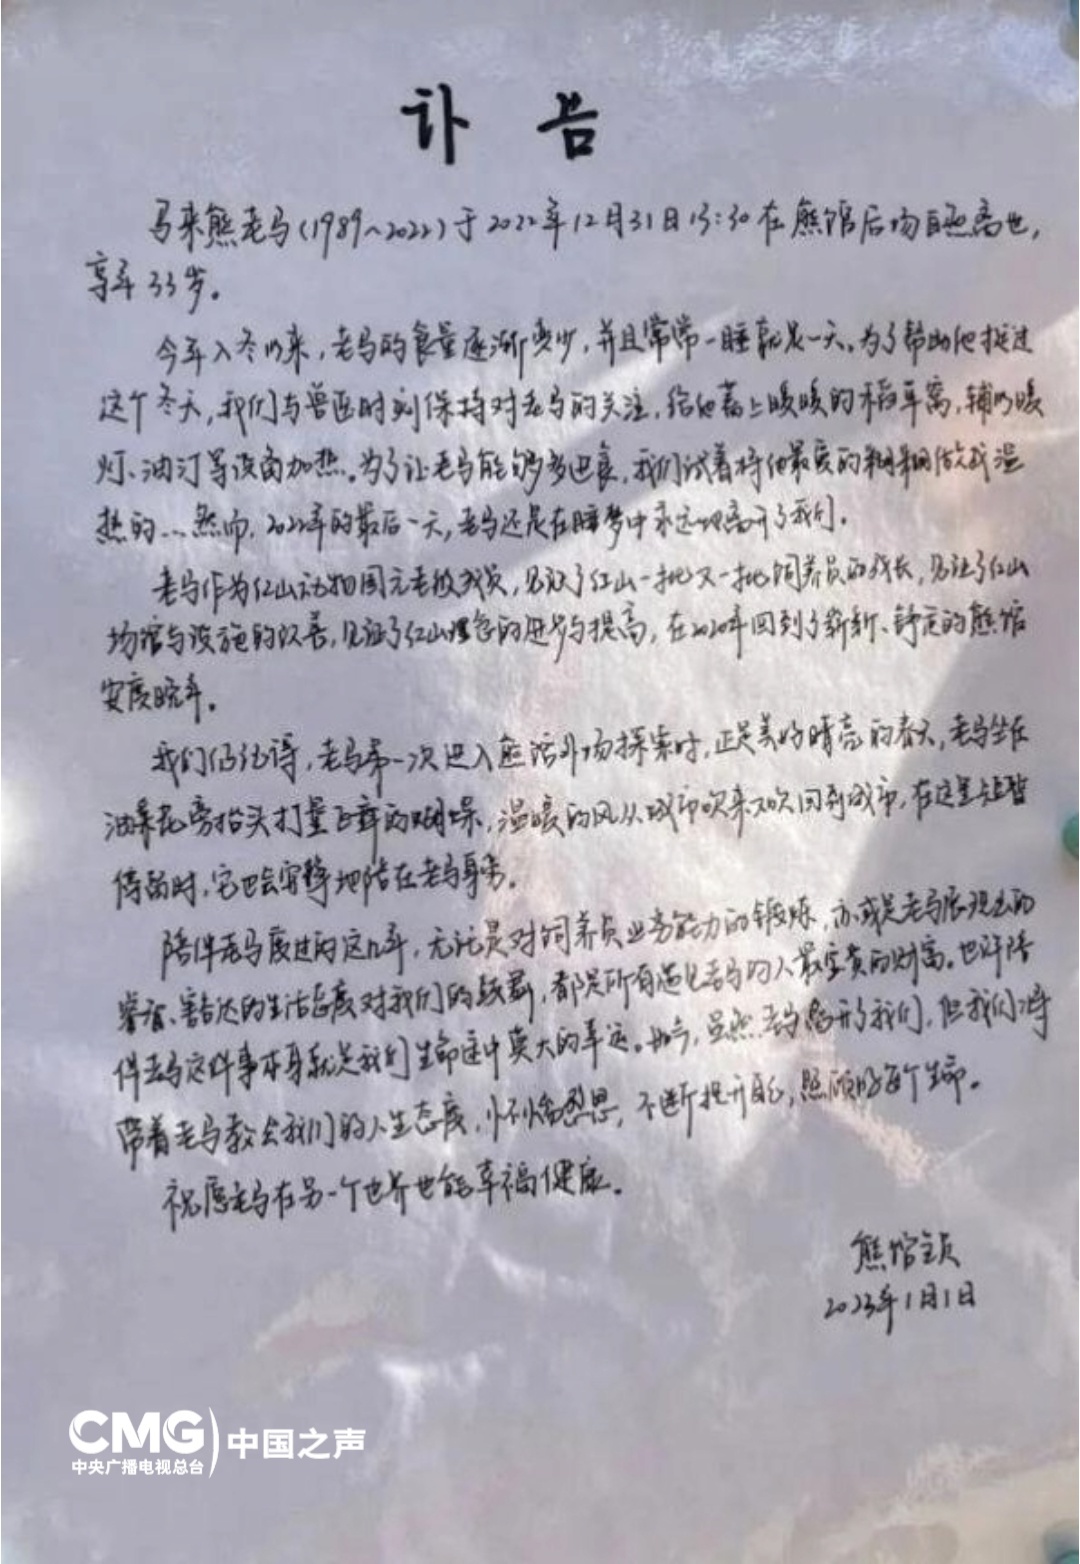 讣告
马来熊老马(1989~2022)于2022年12月31日13:30在熊馆后场自然离世,
享年33岁。
今年入冬以来,老马的食量逐渐变少,并且常常一睡就是一天。为了帮助他挺过
这个冬天,我们与兽医时刻保持对老马的关注,给他蓄上暖暖的稻草窝,辅以暖
灯、油汀等设备加热。为了让老马能够多进食,我们试着将他最爱的糊糊做成温
热的...然而,2022年的最后一天,老马还是在睡梦中永远地离开了我们。
老马作为红山动物园元老级成员,见证了红山一批又一批饲养员的成长,见证了红山
场馆与设施的改善,见证了红山理念的进步与提高,在2020年回到了崭新、舒适的熊馆
安度晚年。
我们仍记得,老马第一次进入熊馆外场探索时,正是美好晴亮的春天,老马坐在
油菜花旁抬头打量飞舞的蝴蝶,温暖的风从城市吹来又吹回到城市,在这里短暂
停留时,它也会安静地陪在老马身旁。
陪伴老马度过的这几年,无论是对饲养员业务能力的锻炼,亦或是老马展现出的
睿智、豁达的生活态度对我们的鼓舞,都是所有遇见老马的人最宝贵的财富。也许陪
伴老马这件事本身就是我们生命途中莫大的幸运。如今,虽然老马离开了我们,但我们将
带着老马教会我们的人生态度,不断提升自己,照顾好每个生命。
祝愿老马在另一个世界也能幸福健康。
熊馆全员
2023年1月1日
CMG 中国之声
中央广播电视总台